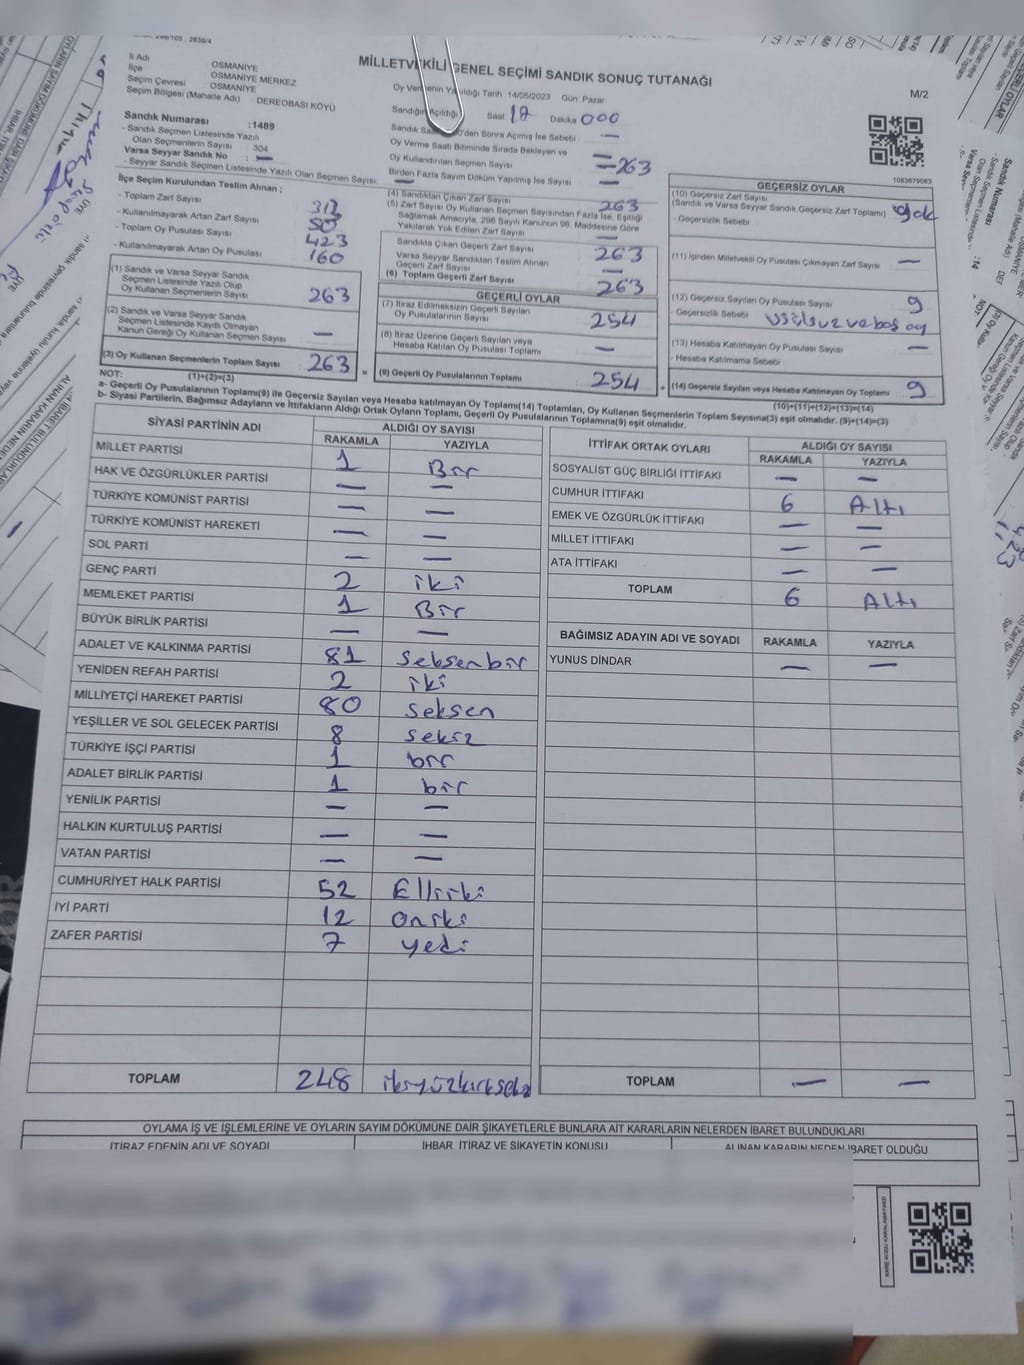 MİLLETVEKİLİ GENEL SEÇİMİ SANDIK SONUÇ TUTANAĞI
M/2
İl Adı OSMANİYE
İlçe OSMANİYE MERKEZ
Seçim Çevresi : OSMANİYE
Seçim Bölgesi (Mahalle Adı) DEREOBASI KÖYÜ
Sandık Numarası :1489
- Sandık Seçmen Listesinde Yazılı
Olan Seçmenlerin Sayısı : 304
Varsa Seyyar Sandık No : —
- Seyyar Sandık Seçmen Listesinde Yazılı Olan Seçmen Sayısı —
Oy Vermenin Yapıldığı Tarih :14/05/2023 Gün: Pazar
Sandığın Açıldığı Saat 17 Dakika 000
Sonra Açmış İse Sebebi —
Oy Verme Saati Bitiminde Sırada Bekleyen ve
Oy Kullandırılan Seçmen Sayısı 263
Birden Fazla Sayım Döküm Yapılmış İse Sayısı —
İlçe Seçim Kurulundan Teslim Alınan ;
- Toplam Zarf Sayısı
- Kullanılmayarak Artan Zarf Sayısı 50
- Toplam Oy Pusulası Sayısı 423
- Kullanılmayarak Artan Oy Pusulası 160
(1) Sandık ve Varsa Seyyar Sandık
Seçmen Listesinde Yazılı Olup
Oy Kullanan Seçmenlerin Sayısı 263
(2) Sandık ve Varsa Seyyar Sandık
Seçmen Listesinde Kayıtlı Olmayan
Kanun Gereği Oy Kullanan Seçmenlerin Sayısı —
(3) Oy Kullanan Seçmenlerin Toplam Sayısı 263
(1)+(2)=(3)
(4) Sandıktan Çıkan Zarf Sayısı 263
(5) Zarf Sayısı Oy Kullanan Seçmen Sayısından Fazla İse, Eşitliği
Sağlamak Amacıyla, 298 Sayılı Kanunun 98. Maddesine Göre
Yakılarak Yok Edilen Zarf Sayısı —
Sandıkta Çıkan Geçerli Zarf Sayısı 263
Varsa Seyyar Sandıktan Teslim Alınan
Geçerli Zarf Sayısı —
(6) Toplam Geçerli Zarf Sayısı 263
GEÇERLİ OYLAR
(7) İtiraz Edilmeksizin Geçerli Sayılan
Oy Pusulalarının Sayısı 254
(8) İtiraz Üzerine Geçerli Sayılan veya
Hesaba Katılan Oy Pusulası Toplamı —
(9) Geçerli Oy Pusulalarının Toplamı 254
1083679083
GEÇERSİZ OYLAR
(10) Geçersiz Zarf Sayısı
(Sandık ve Varsa Seyyar Sandık Geçersiz Zarf Toplamı) yok
- Geçersizlik Sebebi
(11) İçinden Milletvekili Oy Pusulası Çıkmayan Zarf Sayısı —
(12) Geçersiz Sayılan Oy Pusulası Sayısı 9
- Geçersizlik Sebebi
(13) Hesaba Katılmayan Oy Pusulası Sayısı —
- Hesaba Katılmama Sebebi
(14) Geçersiz Sayılan veya Hesaba Katılmayan Oy Toplamı 9
(10)+(11)+(12)+(13)=(14)
NOT:
a- Geçerli Oy Pusulalarının Toplamı(9) ile Geçersiz Sayılan veya Hesaba katılmayan Oy Toplamı(14) Toplamları, Oy Kullanan Seçmenlerin Toplam Sayısına(3) eşit olmalıdır. (9)+(14)=(3)
b- Siyasi Partilerin, Bağımsız Adayların ve İttifakların Aldığı Ortak Oyların Toplamı, Geçerli Oy Pusulalarının Toplamına(9) eşit olmalıdır.
SİYASİ PARTİNİN ADI ALDIĞI OY SAYISI
RAKAMLA YAZIYLA
MİLLET PARTİSİ 1 Bir
HAK VE ÖZGÜRLÜKLER PARTİSİ — —
TÜRKİYE KOMÜNİST PARTİSİ — —
TÜRKİYE KOMÜNİST HAREKETİ — —
SOL PARTİ — —
GENÇ PARTİ 2 iki
MEMLEKET PARTİSİ 1 Bir
BÜYÜK BİRLİK PARTİSİ — —
ADALET VE KALKINMA PARTİSİ 81 Seksenbir
YENİDEN REFAH PARTİSİ 2 iki
MİLLİYETÇİ HAREKET PARTİSİ 80 Seksen
YEŞİLLER VE SOL GELECEK PARTİSİ 8 Sekiz
TÜRKİYE İŞÇİ PARTİSİ 1 bir
ADALET BİRLİK PARTİSİ 1 bir
YENİLİK PARTİSİ — —
HALKIN KURTULUŞ PARTİSİ — —
VATAN PARTİSİ — —
CUMHURİYET HALK PARTİSİ 52 Elliiki
İYİ PARTİ 12 Oniki
ZAFER PARTİSİ 7 yedi
TOPLAM 248
İTTİFAK ORTAK OYLARI ALDIĞI OY SAYISI
RAKAMLA YAZIYLA
SOSYALİST GÜÇ BİRLİĞİ İTTİFAKI — —
CUMHUR İTTİFAKI 6 Altı
EMEK VE ÖZGÜRLÜK İTTİFAKI — —
MİLLET İTTİFAKI — —
ATA İTTİFAKI — —
TOPLAM 6 Altı
BAĞIMSIZ ADAYIN ADI VE SOYADI RAKAMLA YAZIYLA
YUNUS DİNDAR — —
TOPLAM — —
OYLAMA İŞ VE İŞLEMLERİNE VE OYLARIN SAYIM DÖKÜMÜNE DAİR ŞİKAYETLERLE BUNLARA AİT KARARLARIN NELERDEN İBARET BULUNDUKLARI
İTİRAZ EDENİN ADI VE SOYADI İHBAR, İTİRAZ VE ŞİKAYETİN KONUSU ALINAN KARARIN NEDEN İBARET OLDUĞU